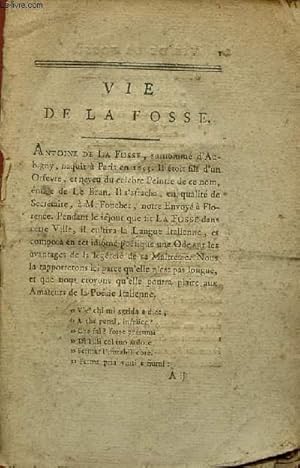 VIE
DE LA FOSSE.
ANTOINE DE LA FOSSE, surnommé d'Au-
bigny, naquit à Paris en 1653. Il étoit fils d'un
Orfevre, et neveu du célebre Peintre de ce nom,
éleve de Le Brun. Il s'attacha, en qualité de
Secrétaire, à M. Foucher, notre Envoyé à Flo-
rence. Pendant le séjour que fit LA FOSSE dans
cette Ville, il cultiva la Langue Italienne, et
composa en cet idiôme poétique une Ode sur les
avantages de la légéreté de sa Maîtresse. Nous
la rapporterons ici parce qu'elle n'est pas longue,
et que nous croyons qu'elle pourra plaire aux
Amateurs de la Poésie Italienne.
» V'è chi mi sgrida e dice,
» A che pensi, infelice?
» Che fai? forse
»
»
»
A j